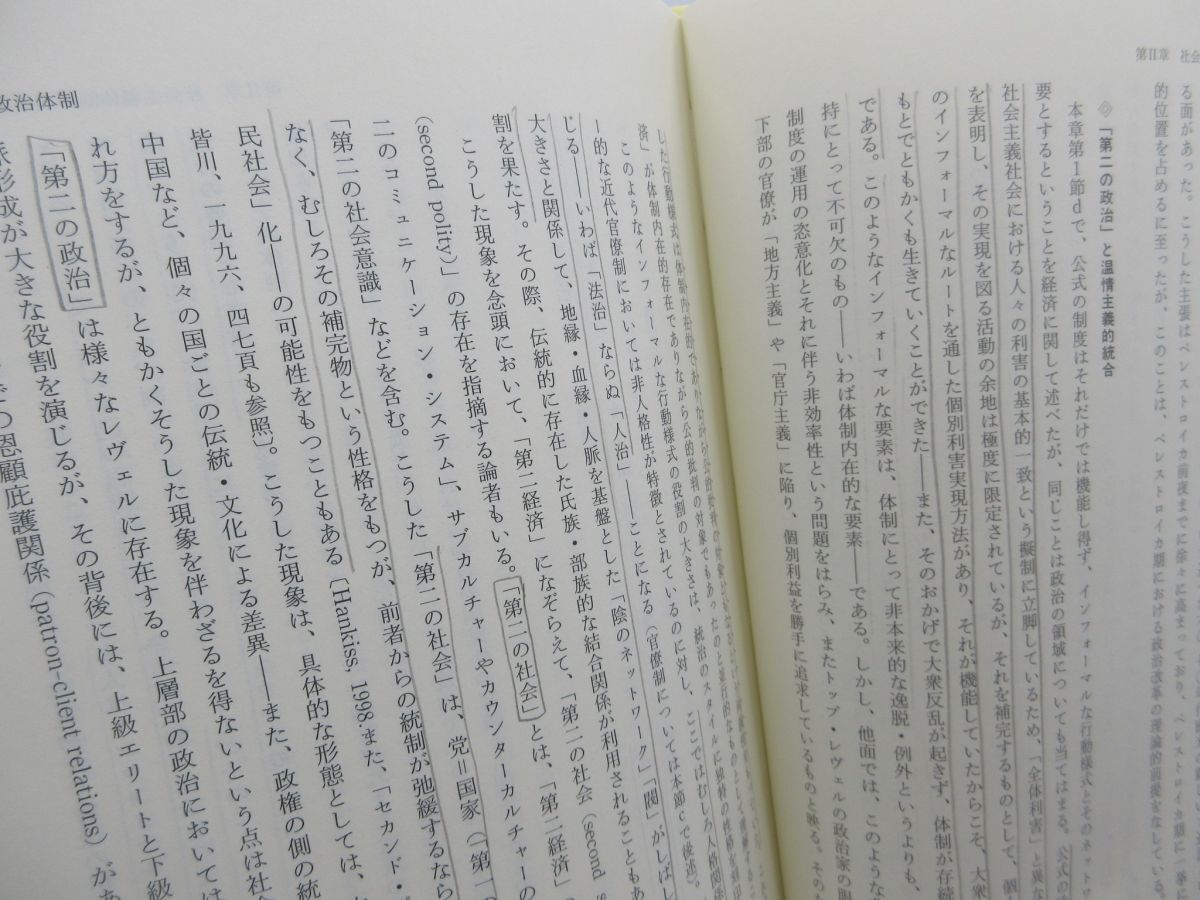 第Ⅱ章 社会
る面があった。こうした主張はペレストロイカ前夜までに徐々に高まっており、ペレストロイカ期に一挙に
的位置を占めるに至ったが、このことは、ペレストロイカ期における政治改革の理論的前提をなしている。
◇「第二の政治」と温情主義的統合
本章第1節dで、公式の制度はそれだけでは機能し得ず、インフォーマルな行動様式とそのネットワ
要とするということを経済に関して述べたが、同じことは政治の領域についても当てはまる。公式の
社会主義社会における人々の利害の基本的一致という擬制に立脚しているため、「全体利害」と異な
を表明し、その実現を図る活動の余地は極度に限定されているが、それを補完するものとして、個
のインフォーマルなルートを通した個別利害実現方法があり、それが機能していたからこそ、大衆
もとでともかくも生きていくことができた――また、そのおかげで大衆反乱が起きず、体制が存続
である。このようなインフォーマルな要素は、体制にとって非本来的な逸脱・例外というよりも、
持にとって不可欠のもの――いわば体制内在的な要素――である。しかし、他面では、このような
制度の運用の恣意化とそれに伴う非効率性という問題をはらみ、またトップ・レヴェルの政治家の眼
下部の官僚が「地方主義」や「官庁主義」に陥り、個別利益を勝手に追求しているものと映る。その
政治体制
済」が体制内在的存在でありながら公的批判の対象でもあったのと並行的なものとして理解する
このようなインフォーマルな行動様式の役割の大きさは、統治のスタイルに独特の性格を刻印
一的な近代官僚制においては非人格性が特徴とされているのに対し、ここではむしろ人格関係
じる――いわば「法治」ならぬ「人治」――ことになる（官僚制については本節cで後述）。
大きさと関係して、地縁・血縁・人脈を基盤とした「陰のネットワーク」「閥」がしばし
割を果たす。その際、伝統的に存在した氏族・部族的な結合関係が利用されることもあ
こうした現象を念頭において、「第二経済」になぞらえて、「第二の社会（second s
(second polity)」の存在を指摘する論者もいる。「第二の社会」とは、「第二経済」
二のコミュニケーション・システム」、サブカルチャーやカウンターカルチャーの
「第二の社会意識」などを含む。こうした「第二の社会」は、党＝国家（「第一
なく、むしろその補完物という性格をもつが、前者からの統制が弛緩するなら
民社会」化――の可能性をもつこともある〔Hankiss 1998. また、「セカンド・
皆川、一九九六、四七頁も参照〕。こうした現象は、具体的な形態としては、
中国など、個々の国ごとの伝統・文化による差異――また、政権の側の統
れ方をするが、ともかくそうした現象を伴わざるを得ないという点は社会
「第二の政治」は様々なレヴェルに存在する。上層部の政治においては
派形成が大きな役割を演じるが、その背後には、上級エリートと下級
の恩顧庇護関係（patron-client relations）があ